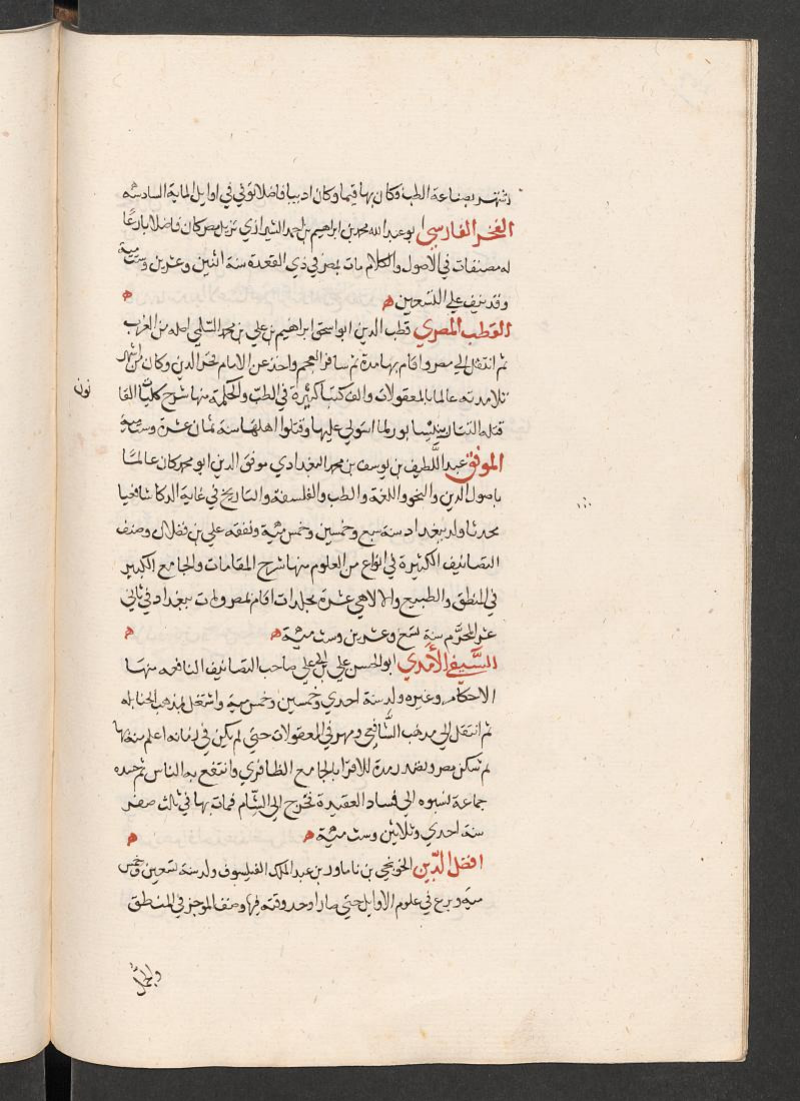 اشتهر بصناعة الطب وكان بها قيما وكان اديبا فاضلا توفي في اوايل الماية السادسة
الفخر الفارسي ابو عبد الله محمد بن ابراهيم بن احمد الشيرازي نزيل مصر كان فاضلا بارعا
له مصنفات في الاصول والكلام مات بمصر في ذي القعدة سنة اثنين وعشرين وستمية
وقد نيف علي التسعين ه ه
القطب المصري قطب الدين ابو اسحق ابراهيم بن علي بن محمد السلمي اصله من الغرب
ثم انتقل الي مصر واقام بها مدة ثم سافر العجم واخذ عن الامام فخر الدين وكان من اشهر
تلامذته عالما بالمعقولات والف كتبا كثيرة في الطب والحكمة منها شرح كليات القا
نون
قتله التتار بنيسابور لما استولي عليها وقتلوا اهلها سنة ثمان عشرة وستمية
الموفق عبد اللطيف بن يوسف بن محمد البغدادي موفق الدين ابو محمد كان عالما
باصول الدين والنحو واللغة والطب والفلسفة والتاريخ في غاية الذكا شافعيا
محدثا ولد ببغداد سنة سبع وخمسين وخمس مئية وتفقه علي بن فضلال وصنف
التصانيف الكثيرة في انواع من العلوم منها شرح المقامات والجامع الكبير
في المنطق والطبيعي والالاهي عشرة مجلدات اقام بمصر ومات ببغداد في ثاني
عشر المحرم سنة تسع وعشرين وست مئية ه ه
السيفي الآمدي ابو الحسن علي بن ابي علي صاحب التصانيف النافعه منها
الاحكام وغيره ولد سنة احدي وخمسين وخمس مية واشتغل بمذهب الحنابلة
ثم انتقل الي مذهب الشافعي ومهر في المعقولات حتي لم يكن في زمانه اعلم منه بها
ثم سكن مصر وتصدر مدة للاقرا بالجامع الظافري وانتفع به الناس ثم حسده
جماعة نسبوه الي فساد العقيدة فخرج الي الشام فمات بها في ثالث صفر
سنة احدي وثلاثين وست مئية ه ه
افضل الدين الخونجي بن ناماور بن عبد الملك الفيلسوف ولد سنة تسعين وخمس
مية وبرع في علوم الاوايل حتي صار اوحد وقته فيها وصنف الموجز في المنطق
والجمل